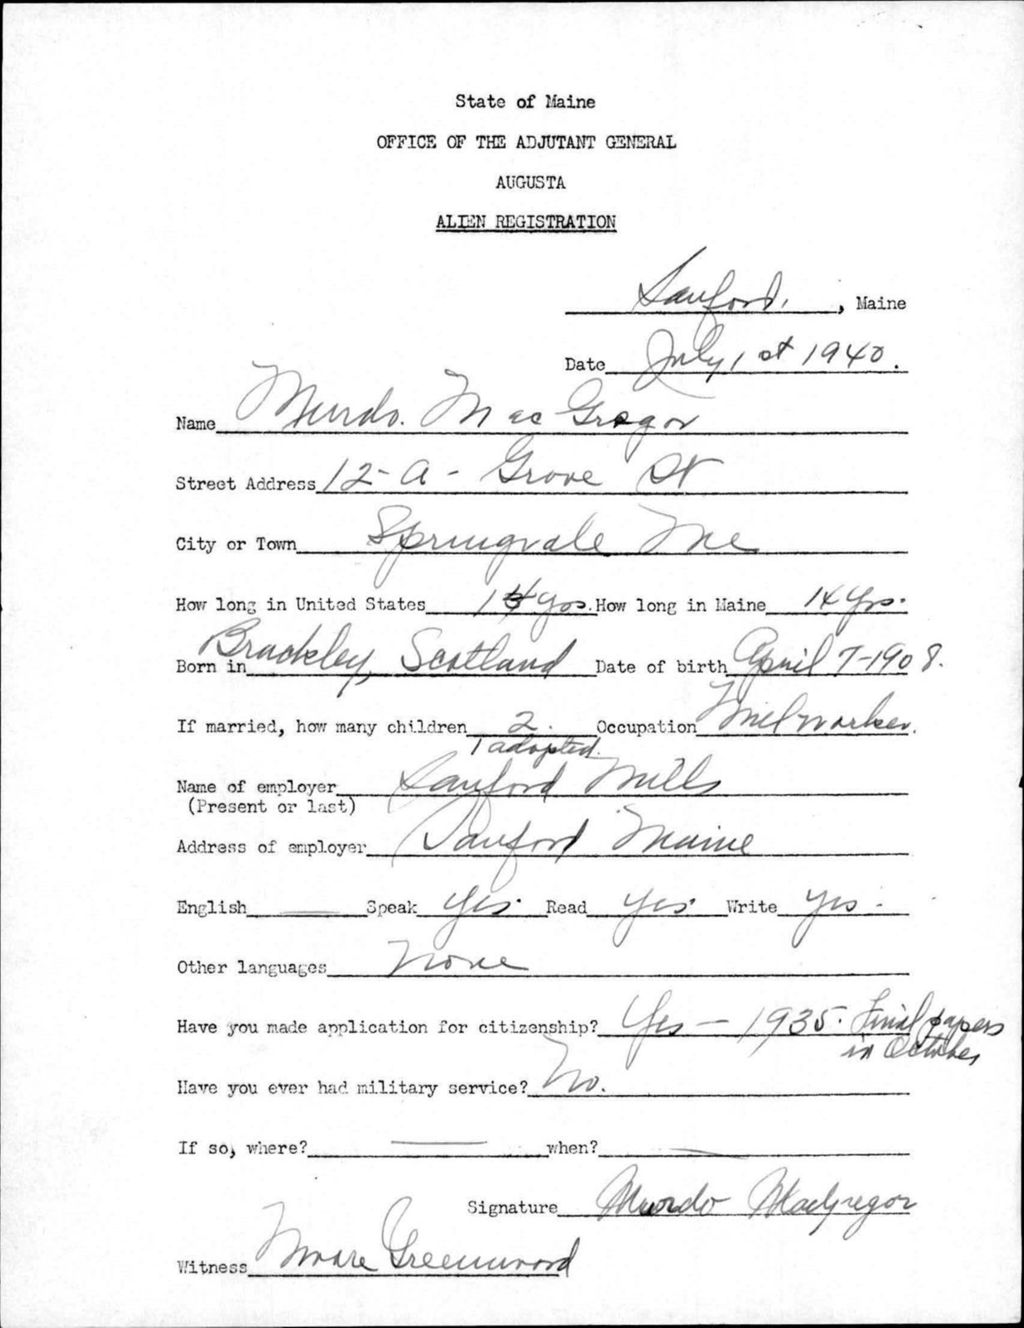 State of Maine
OFFICE OF THE ADJUTANT GENERAL
AUGUSTA
ALIEN REGISTRATION
Sanford, , Maine
Date July 1st 1940.
Name Murdo. MacGregor
Street Address 12-A- Grove St
City or Town Springvale Me
How long in United States 14 yrs. How long in Maine 14 yrs.
Born in Brackley, Scotland Date of birth April 7-1908.
If married, how many children 2. Occupation Millworker.
1 adopted.
Name of employer Sanford Mills
(Present or last)
Address of employer Sanford Maine
English Speak Yes. Read Yes. Write Yes -
Other languages None
Have you made application for citizenship? Yes - 1935. Final papers
in October
Have you ever had military service? No.
If so, where? when?
Signature Murdo MacGregor
Witness Greenwood